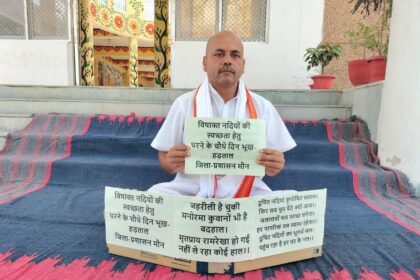 विषाक्त नदियों की
स्वच्छता हेतु
धरने के चौथे दिन भूख-
हड़ताल
जिला-प्रशासन मौन
विषाक्त नदियों की
स्वच्छता हेतु
धरने के चौथे दिन भूख-
हड़ताल
जिला-प्रशासन मौन
जहरीली है चुकी
मनोरमा कुवानों भी हैं
बदहाल।
मृतप्राय रामरेखा हो गई
नहीं ले रहा कोई हाल।।
दूषित नदियां कुपोषित समाज
फिर सब चुप बैठे क्यों आज।